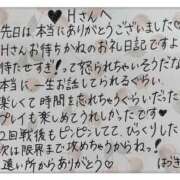 ♡Hさんへ
先日は本当にありがとうございました♡
Hさんお待ちかねのお礼日記ですよ
待たせすぎ!って怒られちゃいそうだな
本当に一生お話してられるぐらい
楽しくて時間を忘れちゃうぐらいだった
プレイも楽しめてうれしかったです♥
2回戦後もピンピンしてて、びっくりした
次は限界まで攻めちゃうからねっ!
遠い所からありがとう♡
はづき